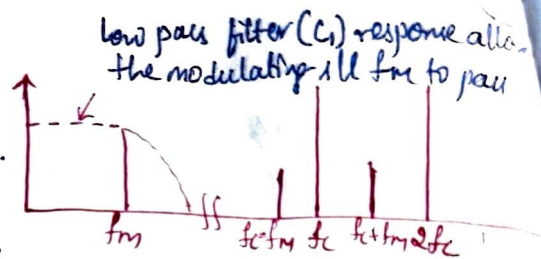 Low pass filter (C₁) response allo
the modulating fm to pass
fm fc-fm fc fc+fm 2fc